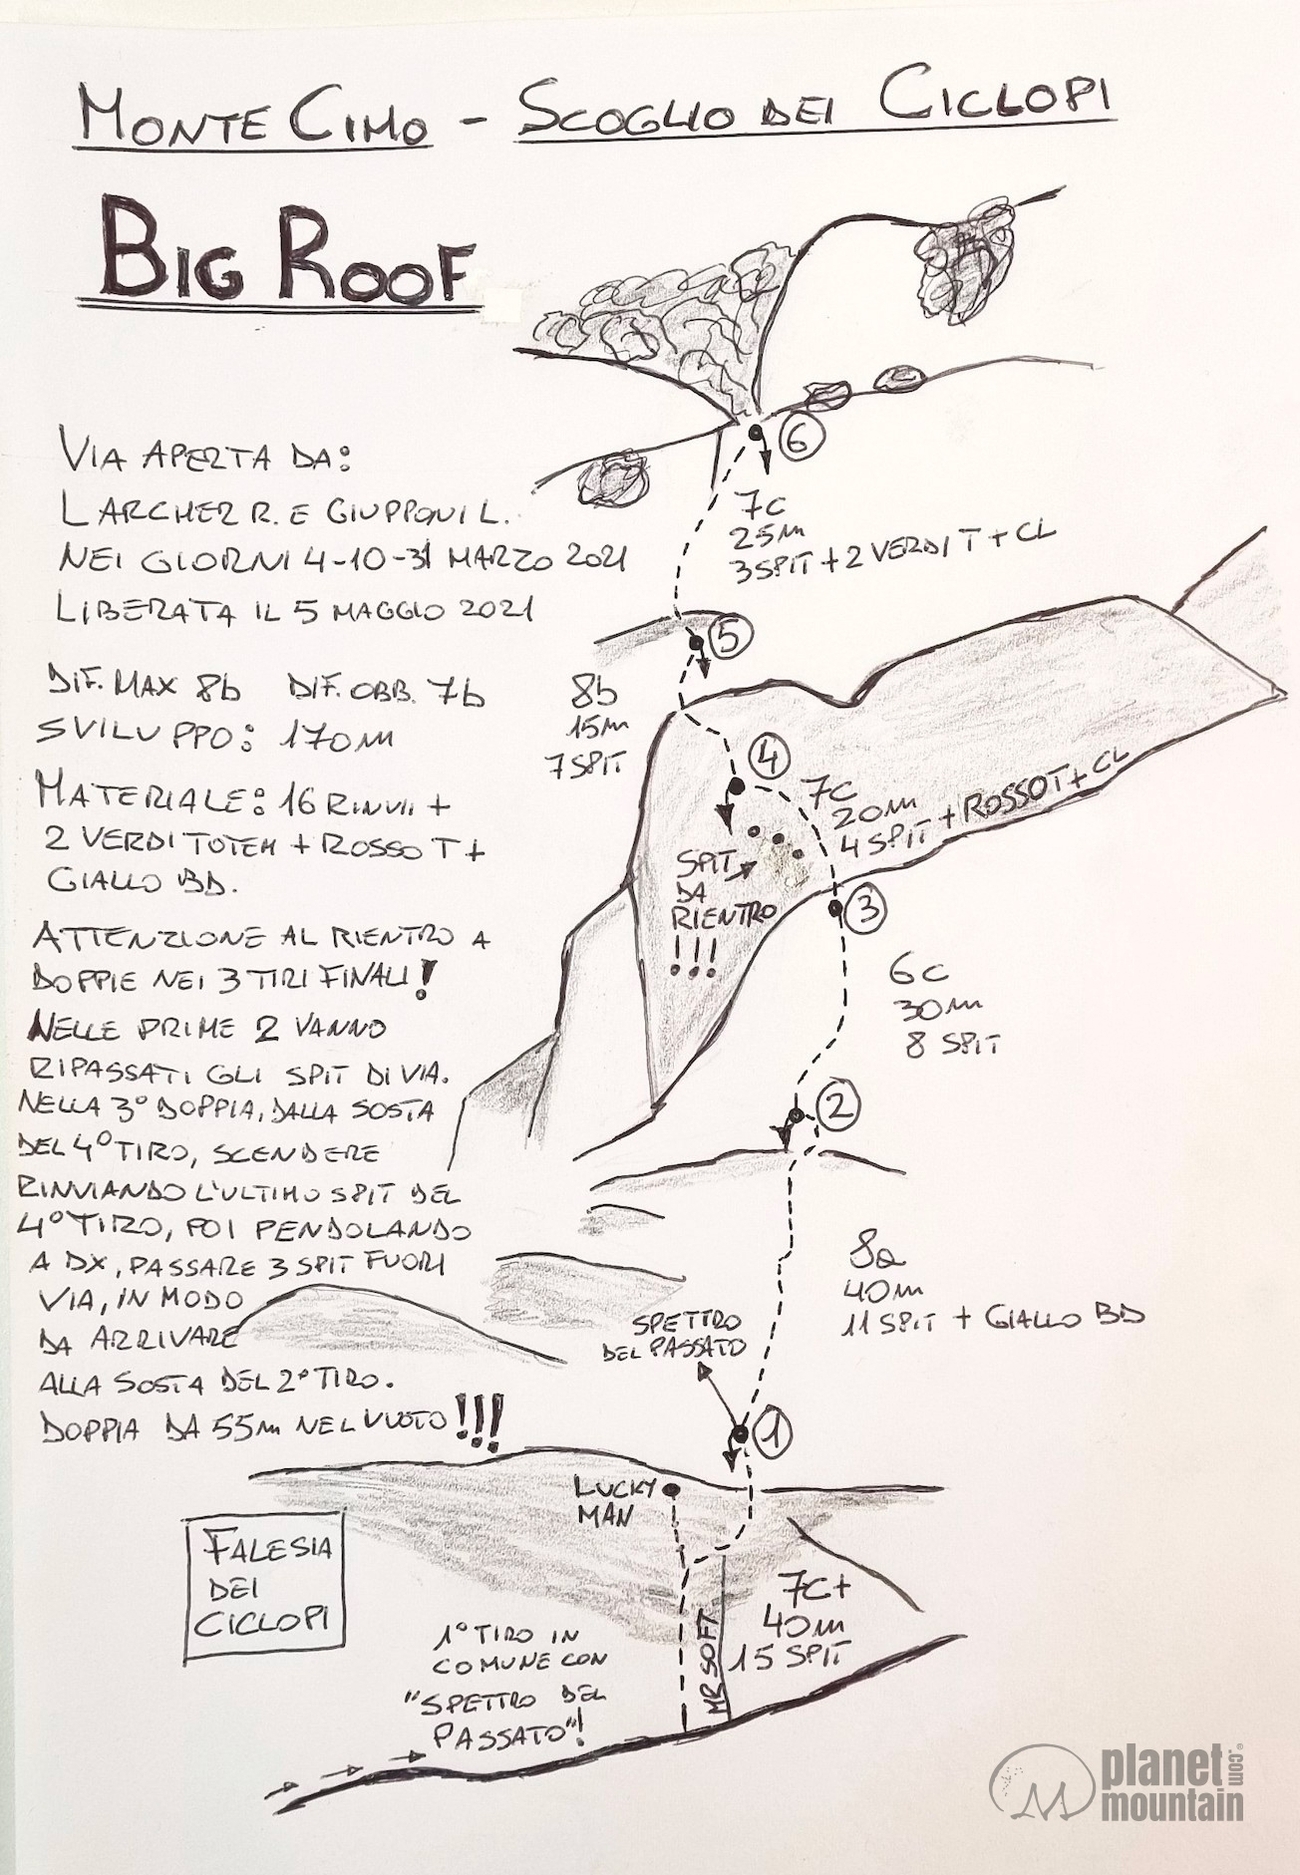 MONTE CIMO - SCOGLIO DEI CICLOPI
BIG ROOF
VIA APERTA DA:
LARCHER R. E GIUPPONI L.
NEI GIORNI 4-10-31 MARZO 2021
LIBERATA IL 5 MAGGIO 2021
DIF. MAX 8b DIF. OBB. 7b
SVILUPPO: 170m
MATERIALE: 16 RINVII +
2 VERDI TOTEM + ROSSO T +
GIALLO BD.
ATTENZIONE AL RIENTRO A
DOPPIE NEI 3 TIRI FINALI!
NELLE PRIME 2 VANNO
RIPASSATI GLI SPIT DI VIA.
NELLA 3° DOPPIA, DALLA SOSTA
DEL 4° TIRO, SCENDERE
RINVIANDO L'ULTIMO SPIT DEL
4° TIRO, POI PENDOLANDO
A DX, PASSARE 3 SPIT FUORI
VIA, IN MODO
DA ARRIVARE
ALLA SOSTA DEL 2° TIRO.
DOPPIA DA 55m NEL VUOTO!!!
6
7c
25m
3 SPIT + 2 VERDI T + CL
5
8b
15m
7 SPIT
4
7c
20m
4 SPIT + ROSSO T + CL
SPIT
DA
RIENTRO
!!!
3
6c
30m
8 SPIT
2
8a
40m
11 SPIT + GIALLO BD
SPETTRO
DEL PASSATO
1
LUCKY
MAN
7c+
40m
15 SPIT
MR SOFT
FALESIA
DEI
CICLOPI
1° TIRO IN
COMUNE CON
"SPETTRO DEL
PASSATO"!
planet
mountain
.com